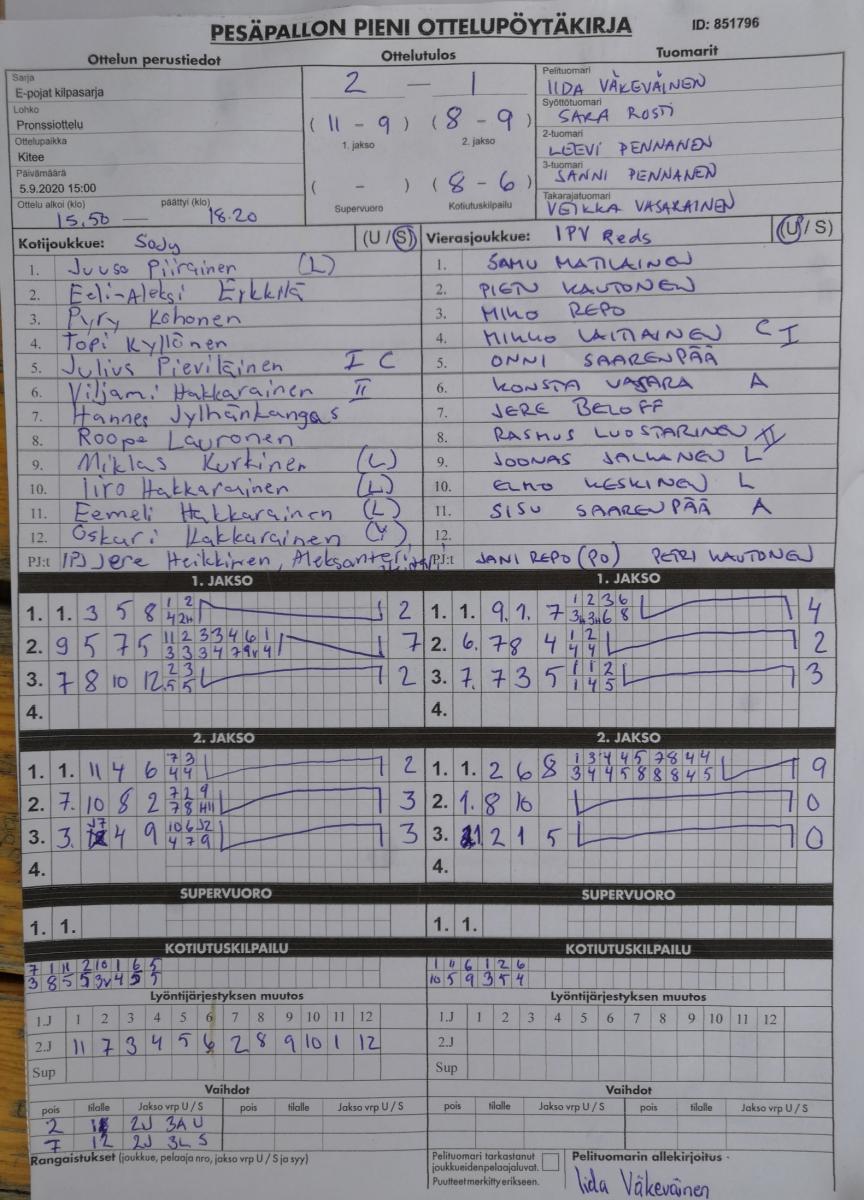 PESÄPALLON PIENI OTTELUPÖYTÄKIRJA ID: 851796
Ottelun perustiedot Ottelutulos Tuomarit
Sarja
E-pojat kilpasarja
Lohko
Pronssiottelu
Ottelupaikka
Kitee
Päivämäärä
5.9.2020 15:00
Ottelu alkoi (klo) päättyi (klo)
15.50 — 18.20
2 — 1
( 11 - 9 ) ( 8 - 9 )
1. jakso 2. jakso
( - ) ( 8 - 6 )
Supervuoro Kotiutuskilpailu
Pelituomari
IIDA VÄKEVÄINEN
Syöttötuomari
SARA ROSTI
2-tuomari
LEEVI PENNANEN
3-tuomari
SANNI PENNANEN
Takarajatuomari
VEIKKA VASARAINEN
Kotijoukkue: SoJy (U / S)
1. Juuso Piirainen (L)
2. Eeli-Aleksi Erkkilä
3. Pyry Kohonen
4. Topi Kyllönen
5. Julius Pieviläinen I C
6. Viljami Hakkarainen II
7. Hannes Jylhänkangas
8. Roope Lauronen
9. Miklas Kurkinen (L)
10. Iiro Hakkarainen (L)
11. Eemeli Hakkarainen (L)
12. Oskari Hakkarainen (Y)
PJ:t IPJ Jere Heikkinen, Aleksanteri
Vierasjoukkue: IPV Reds (U / S)
1. SAMU MATILAINEN
2. PIETU KAUTONEN
3. MIKO REPO
4. MIKKO LAITIAINEN C I
5. ONNI SAARENPÄÄ
6. KONSTA VASARA A
7. JERE BELOFF
8. RASMUS LUOSTARINEN II
9. JOONAS JALKANEN L
10. ELMO KESKINEN L
11. SISU SAARENPÄÄ A
12.
PJ:t JANI REPO (PO) PETRI KAUTONEN
1. JAKSO 1. JAKSO
1. 1. 3 5 8 2
2. 9 5 7 5 7
3. 7 8 10 12 2
4.
1. 1. 9. 1. 7 4
2. 6. 7 8 4 2
3. 7. 7 3 5 3
4.
2. JAKSO 2. JAKSO
1. 1. 11 4 6 2
2. 7. 10 8 2 3
3. 3. 4 9 3
4.
1. 1. 2 6 8 9
2. 1. 8 10 0
3. 2 1 5 0
4.
SUPERVUORO SUPERVUORO
1. 1. 1. 1.
KOTIUTUSKILPAILU KOTIUTUSKILPAILU
7 1 11 2 10 1 6 5
1 11 6 1 2 6
10 5 9 3 5 4
Lyöntijärjestyksen muutos Lyöntijärjestyksen muutos
1.J 1 2 3 4 5 6 7 8 9 10 11 12
2.J 11 7 3 4 5 6 2 8 9 10 1 12
Sup
1.J 1 2 3 4 5 6 7 8 9 10 11 12
2.J
Sup
Vaihdot Vaihdot
pois tilalle Jakso vrp U / S pois tilalle Jakso vrp U / S
2 2J 3A U
7 12 2J 3L S
pois tilalle Jakso vrp U / S pois tilalle Jakso vrp U / S
Rangaistukset (joukkue, pelaaja nro, jakso vrp U / S ja syy)
Pelituomari tarkastanut
joukkueidenpelaajaluvat.
Puutteet merkitty erikseen.
Pelituomarin allekirjoitus
Iida Väkeväinen